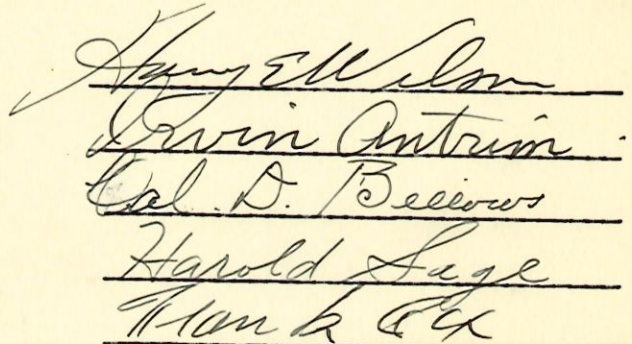 Harry E Wilson
Irvin Antrim
Cal. D. Bellows
Harold Sage
Frank